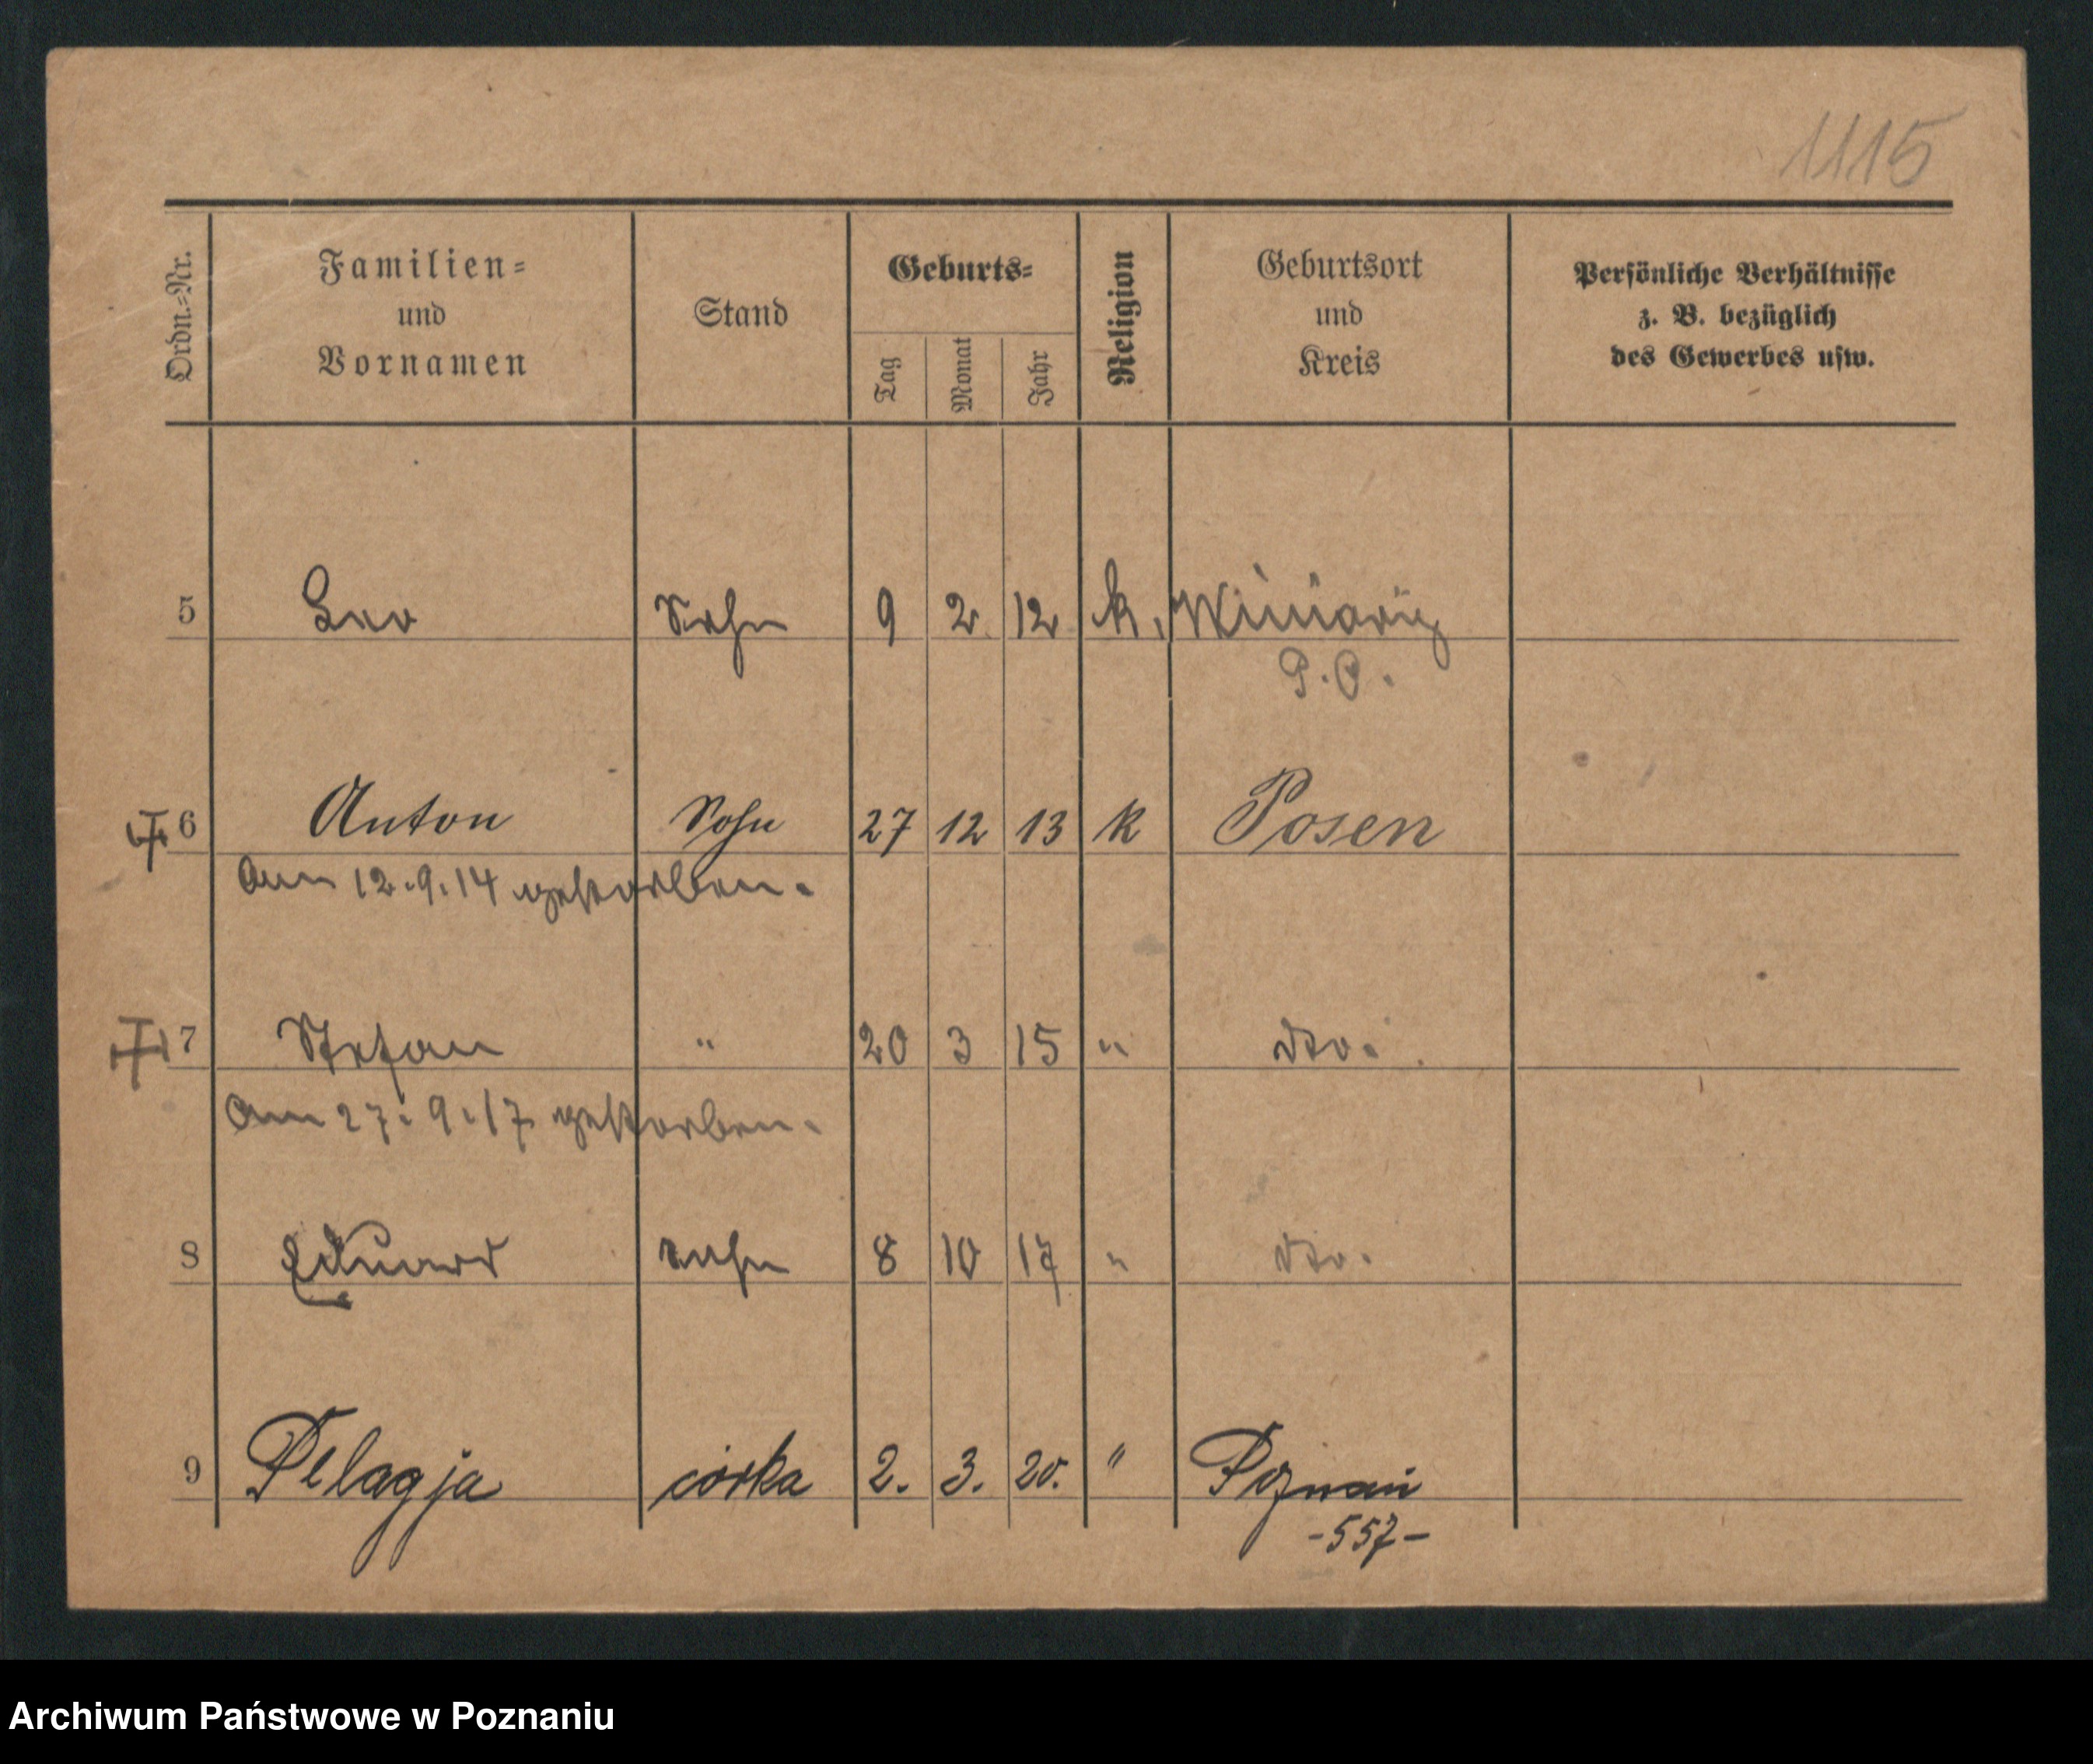 1115
Ordn.=Nr. Familien= und Vornamen Stand Geburts= Tag Monat Jahr Religion Geburtsort und Kreis Persönliche Verhältnisse z. B. bezüglich des Gewerbes usw.
5 Leo Sohn 9 2 12 k. Winiary
P. O.
6 Anton Sohn 27 12 13 k Posen
Am 12.9.14 gestorben.
7 Stefan " 20 3 15 " dto.
Am 27.9.17 gestorben.
8 Eduard Sohn 8 10 17 " dto.
9 Pelagja córka 2. 3. 20. " Poznań
-557-
Archiwum Państwowe w Poznaniu